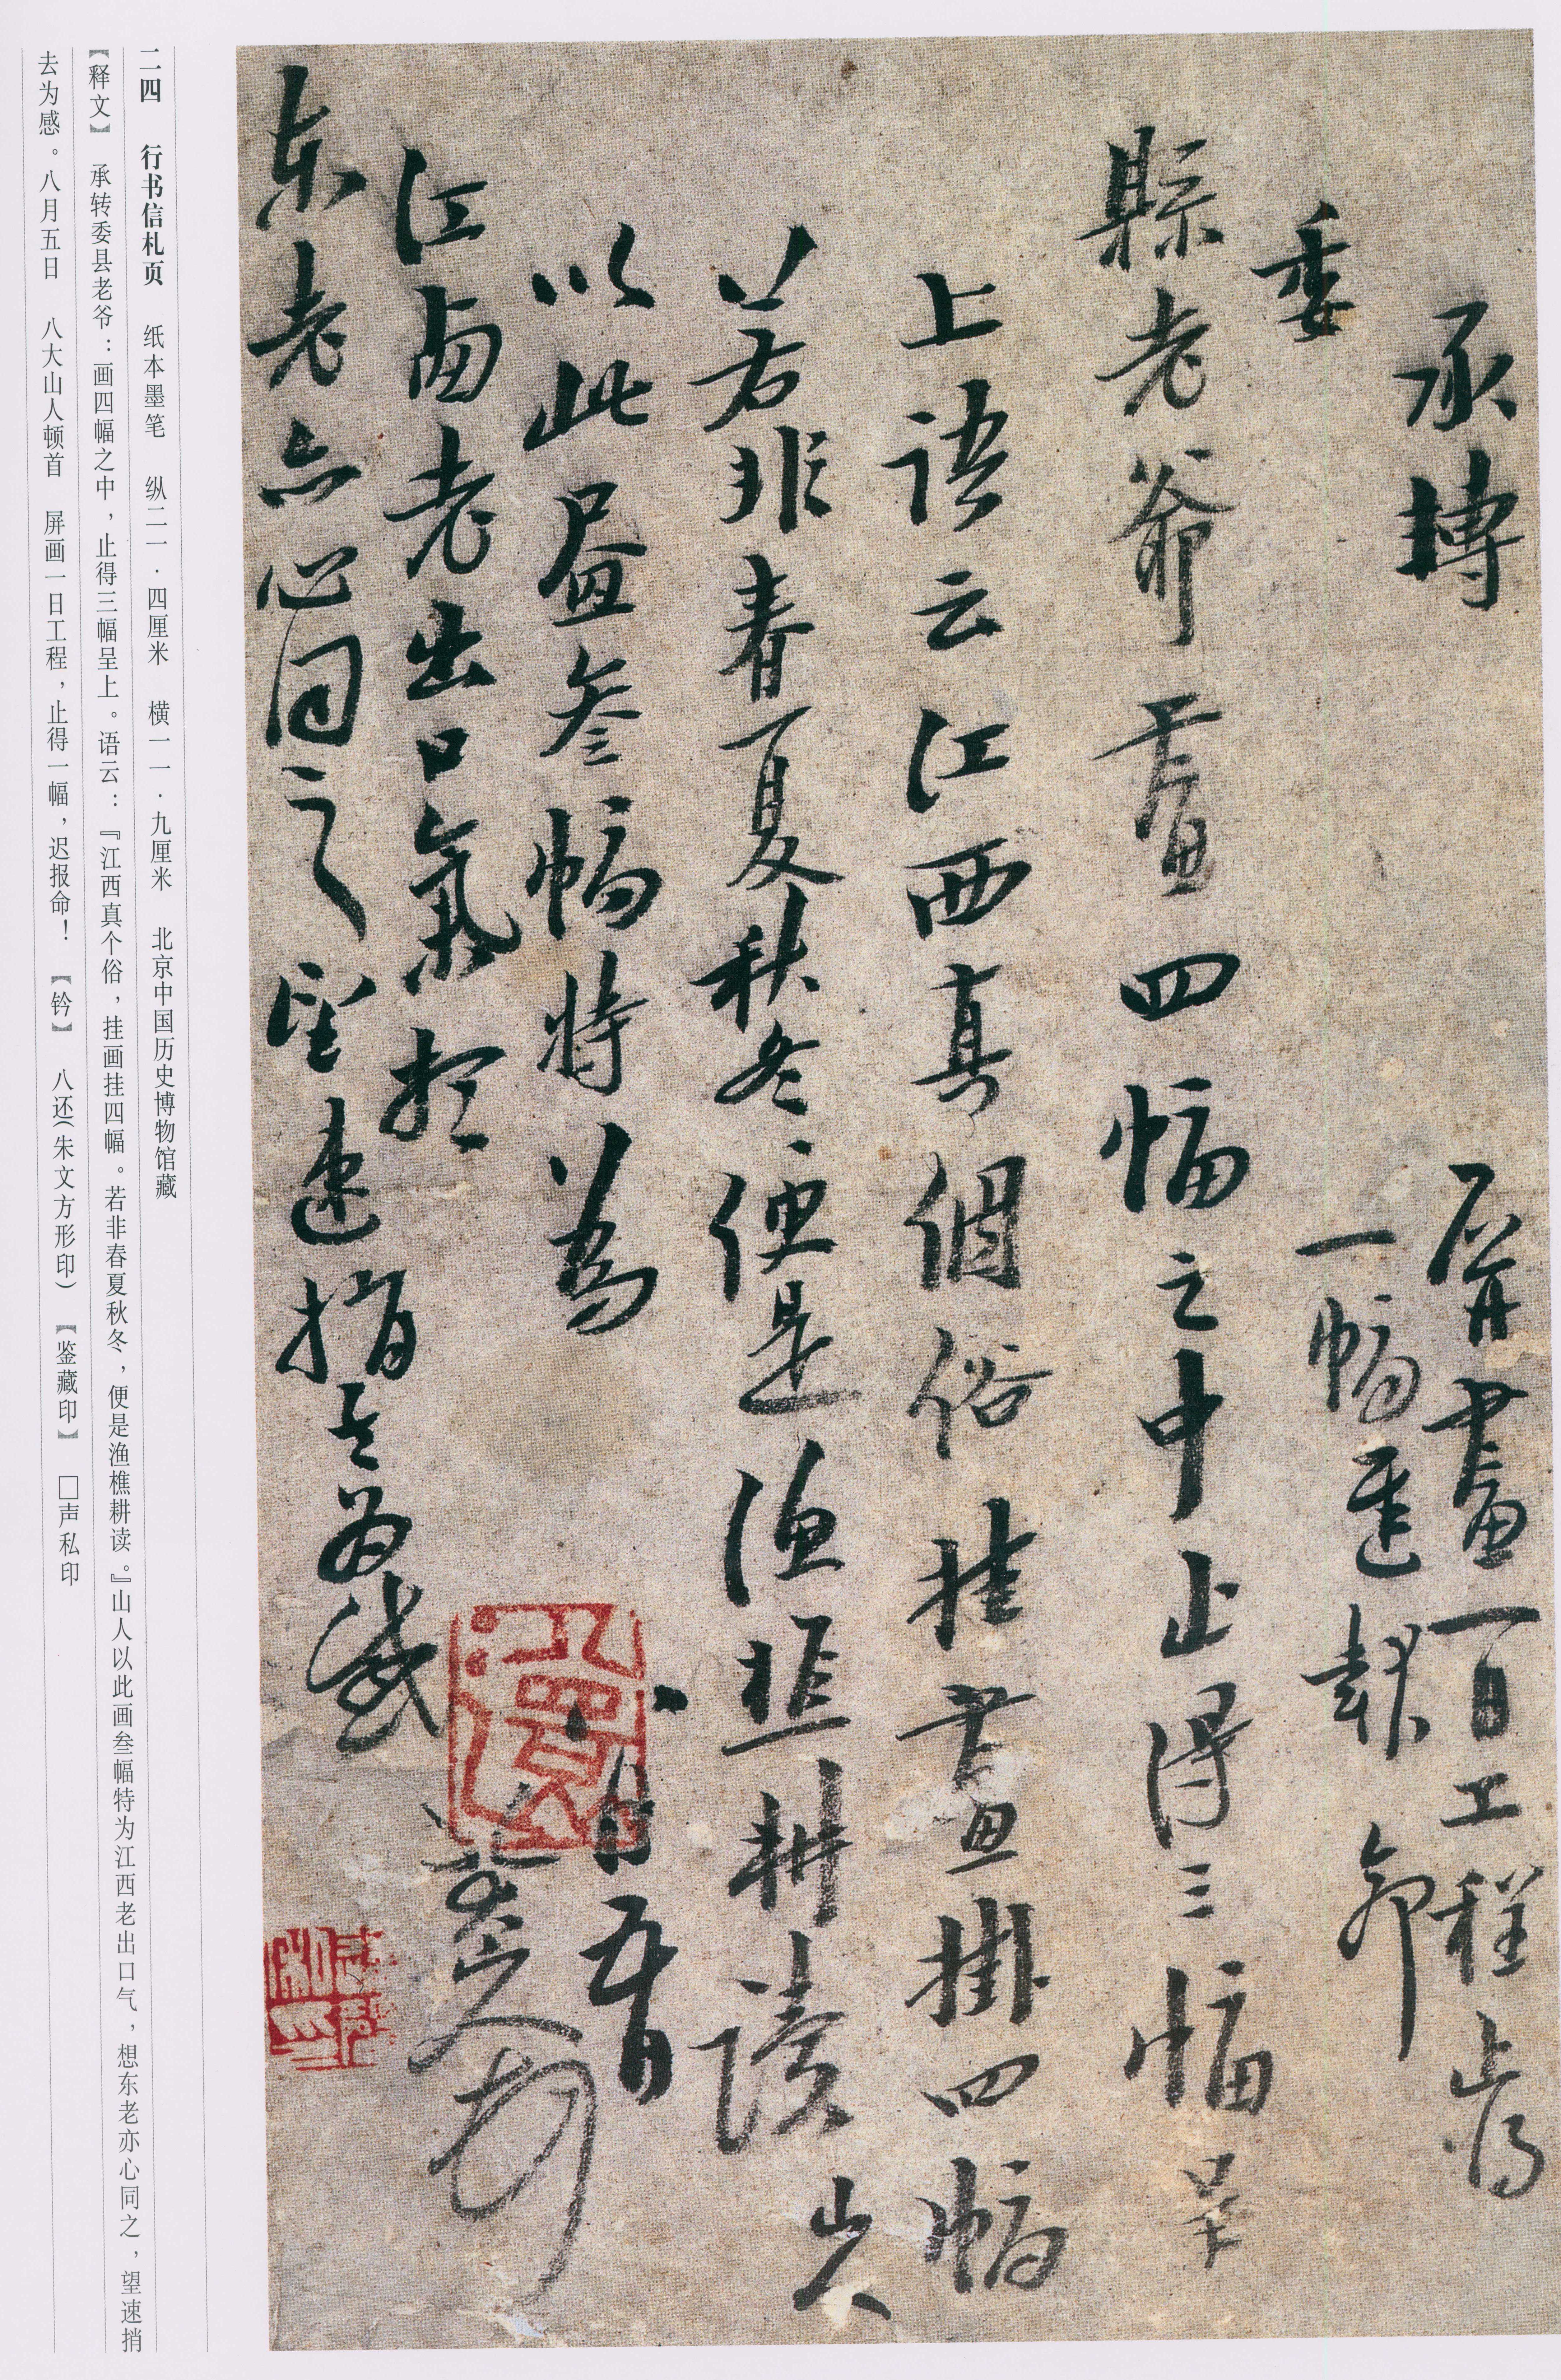 承轉
委
縣老爺畫四幅之中止得三幅呈
上語云江西真個俗挂畫掛四幅
若非春夏秋冬便是漁樵耕讀山人
以此畫叁幅特為
江西老出口氣想
東老亦心同之望速捎去為感
八月五日
八大山人頓首
屏畫一日工程止得
一幅遲報命
二四 行书信札页 纸本墨笔 纵二一·四厘米 横一一·九厘米 北京中国历史博物馆藏
【释文】 承转委县老爷：画四幅之中，止得三幅呈上。语云：『江西真个俗，挂画挂四幅。若非春夏秋冬，便是渔樵耕读。』山人以此画叁幅特为江西老出口气，想东老亦心同之，望速捎
去为感。八月五日 八大山人顿首 屏画一日工程，止得一幅，迟报命！ 【钤】 八还（朱文方形印） 【鉴藏印】 □声私印